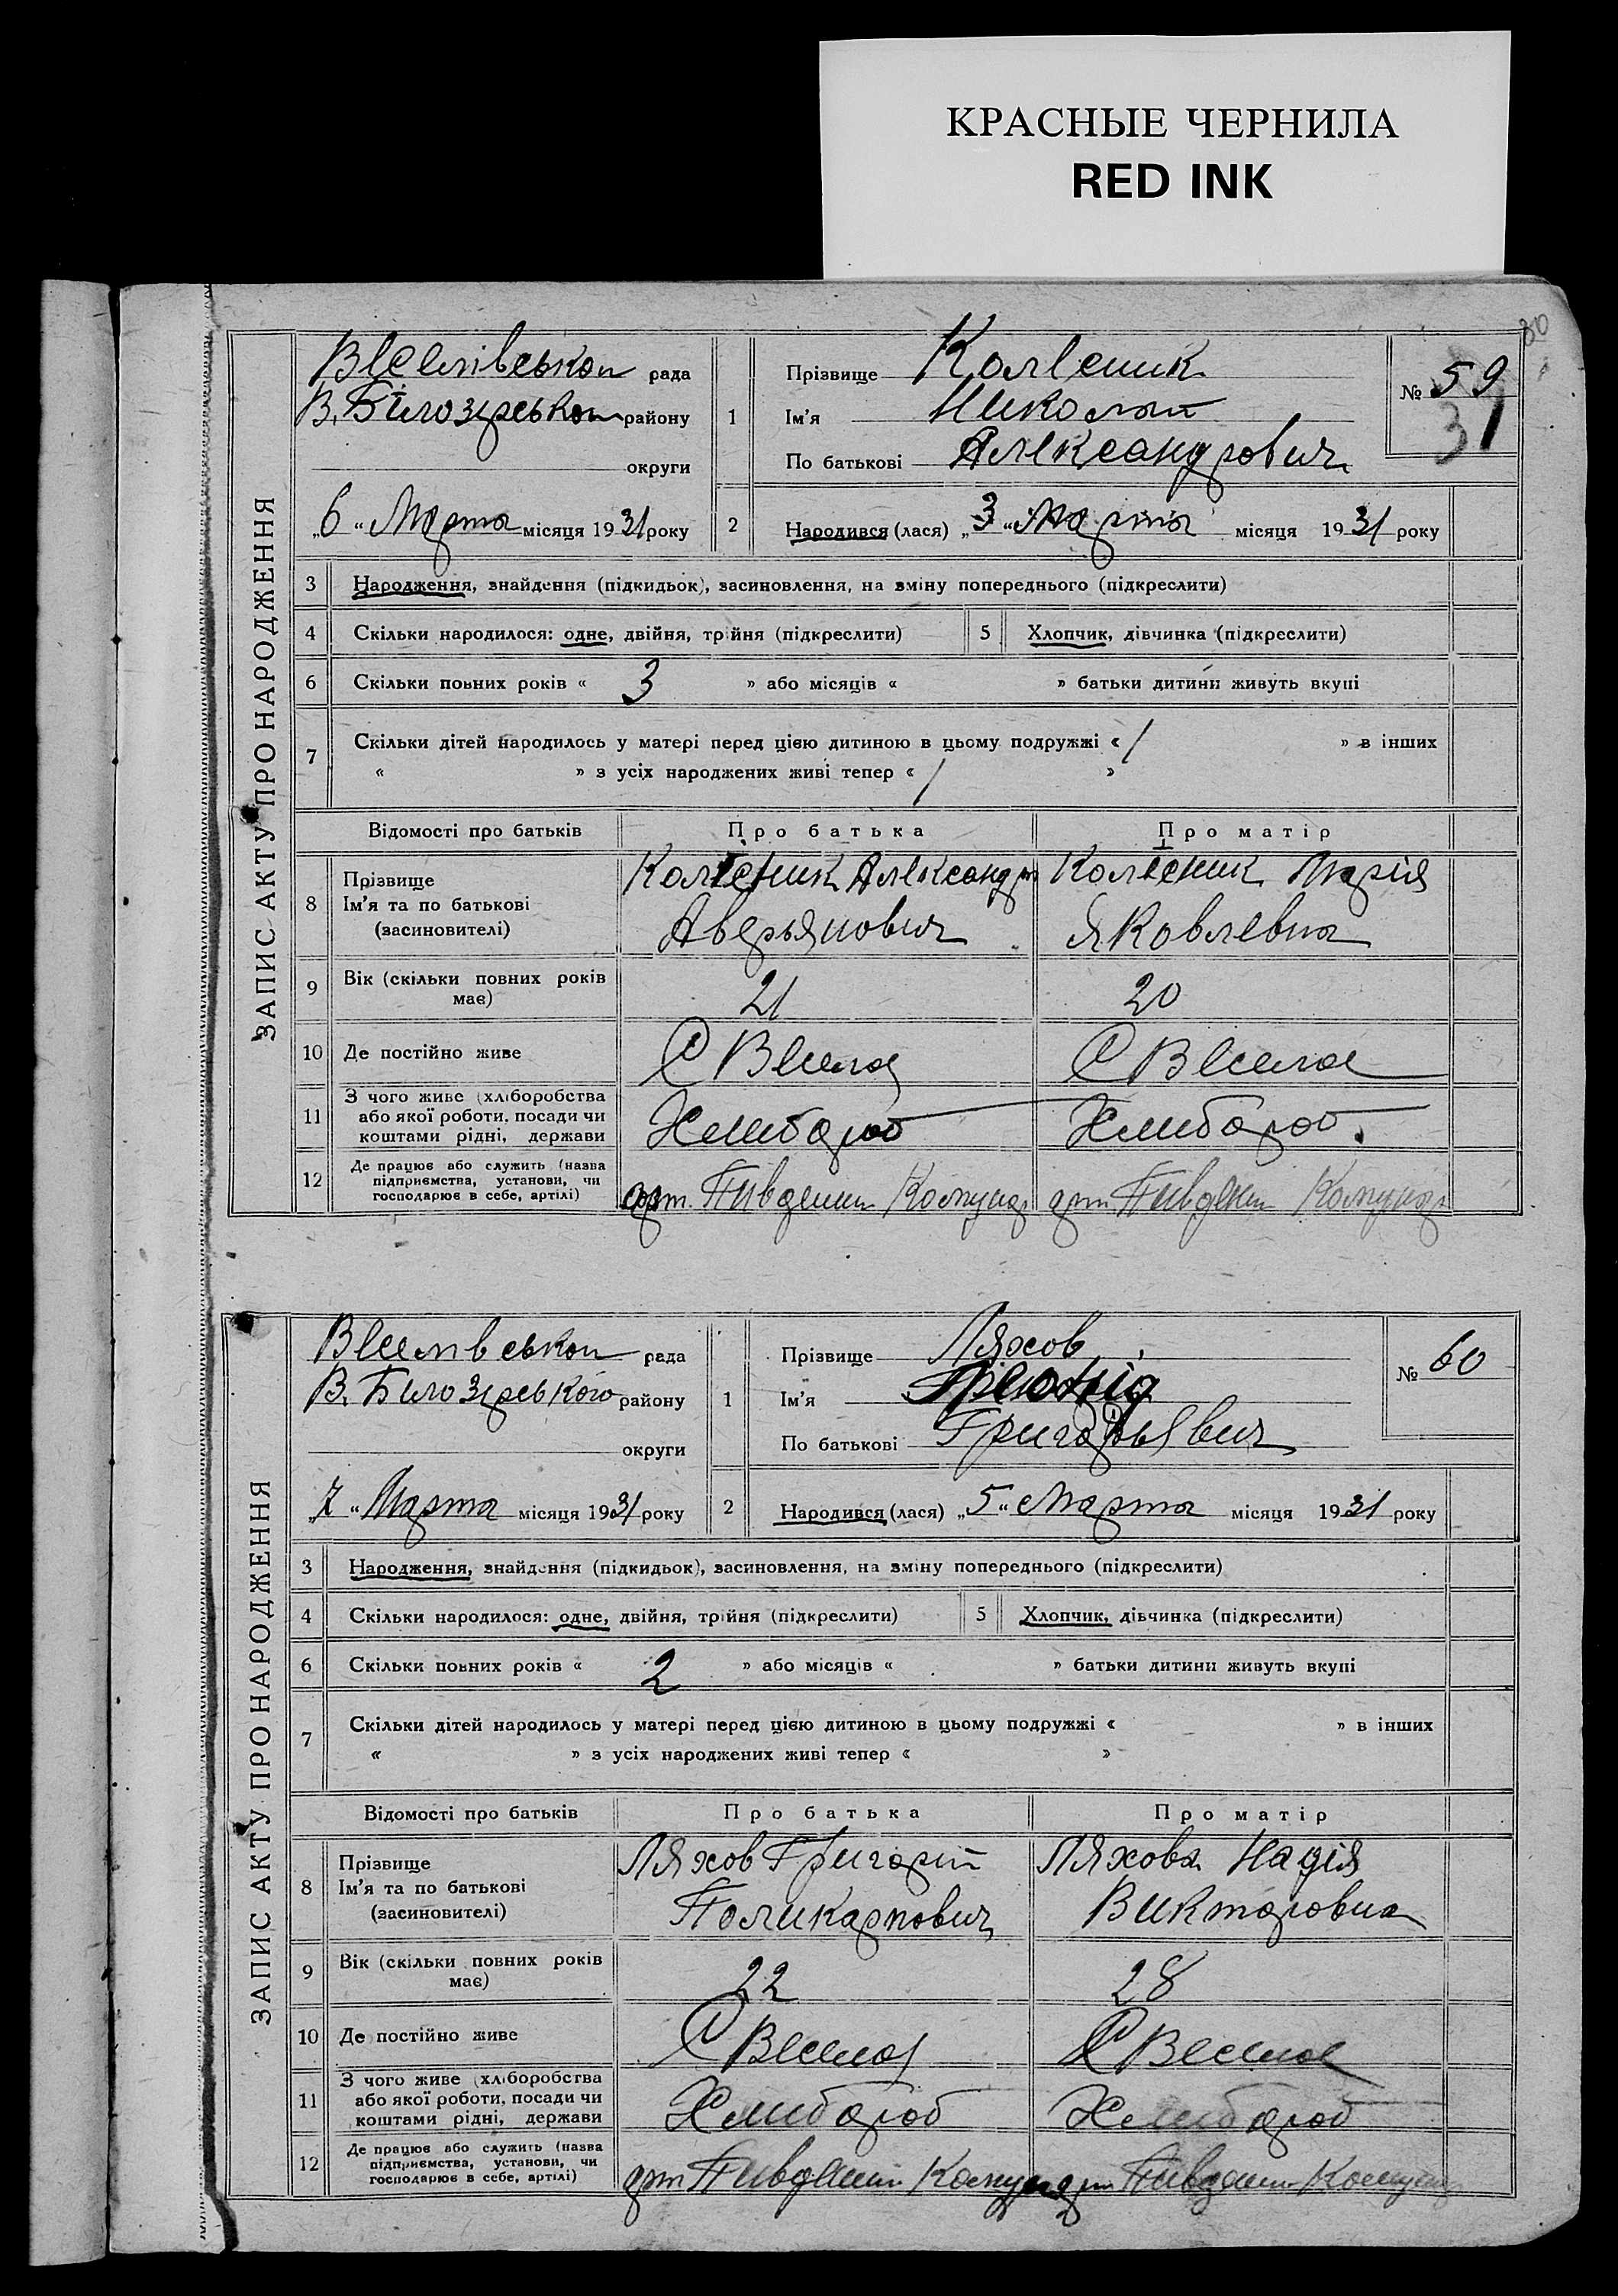 КРАСНЫЕ ЧЕРНИЛА
RED INK
30
ЗАПИС АКТУ ПРО НАРОДЖЕННЯ
Веселівськои рада
В. Білозірськои району
округи
„6“ Марта місяця 1931 року
1
Прізвище Колесник
Ім'я Николай
По батькові Александрович
№ 59
31
2
Народився (лася) „3“ Марта місяця 1931 року
3 Народження, знайдення (підкидьок), засиновлення, на зміну попереднього (підкреслити)
4 Скільки народилося: одне, двійня, трійня (підкреслити) 5 Хлопчик, дівчинка (підкреслити)
6 Скільки повних років « 3 » або місяців « » батьки дитини живуть вкупі
7 Скільки дітей народилось у матері перед цією дитиною в цьому подружжі « 1 » в інших
« » з усіх народжених живі тепер « 1 »
Відомості про батьків Про батька Про матір
8 Прізвище
Ім'я та по батькові
(засиновителі)
Колесник Александр
Аверьянович
Колесник Марія
Яковлевна
9 Вік (скільки повних років має) 21 20
10 Де постійно живе С Весела С Веселое
11 З чого живе (хліборобства
або якої роботи, посади чи
коштами рідні, держави
Хлибороб Хлибороб
12 Де працює або служить (назва
підприємства, установи, чи
господарює в себе, артілі)
арт. Пивденн Комунар арт Пивденн Комунар
ЗАПИС АКТУ ПРО НАРОДЖЕННЯ
Веселівськои рада
В. Билозірського району
округи
„7“ Марта місяця 1931 року
1
Прізвище Ляхов
Ім'я
По батькові Григорьевич
№ 60
2
Народився (лася) „5“ Марта місяця 1931 року
3 Народження, знайдення (підкидьок), засиновлення, на зміну попереднього (підкреслити)
4 Скільки народилося: одне, двійня, трійня (підкреслити) 5 Хлопчик, дівчинка (підкреслити)
6 Скільки повних років « 2 » або місяців « » батьки дитини живуть вкупі
7 Скільки дітей народилось у матері перед цією дитиною в цьому подружжі « » в інших
« » з усіх народжених живі тепер « »
Відомості про батьків Про батька Про матір
8 Прізвище
Ім'я та по батькові
(засиновителі)
Ляхов Григорий
Поликарпович
Ляхова Надія
Викторовна
9 Вік (скільки повних років має) 22 28
10 Де постійно живе С Весела С Веселое
11 З чого живе (хліборобства
або якої роботи, посади чи
коштами рідні, держави
Хлибороб Хлибороб
12 Де працює або служить (назва
підприємства, установи, чи
господарює в себе, артілі)
арт Пивденн Комунар арт Пивденн Комунар